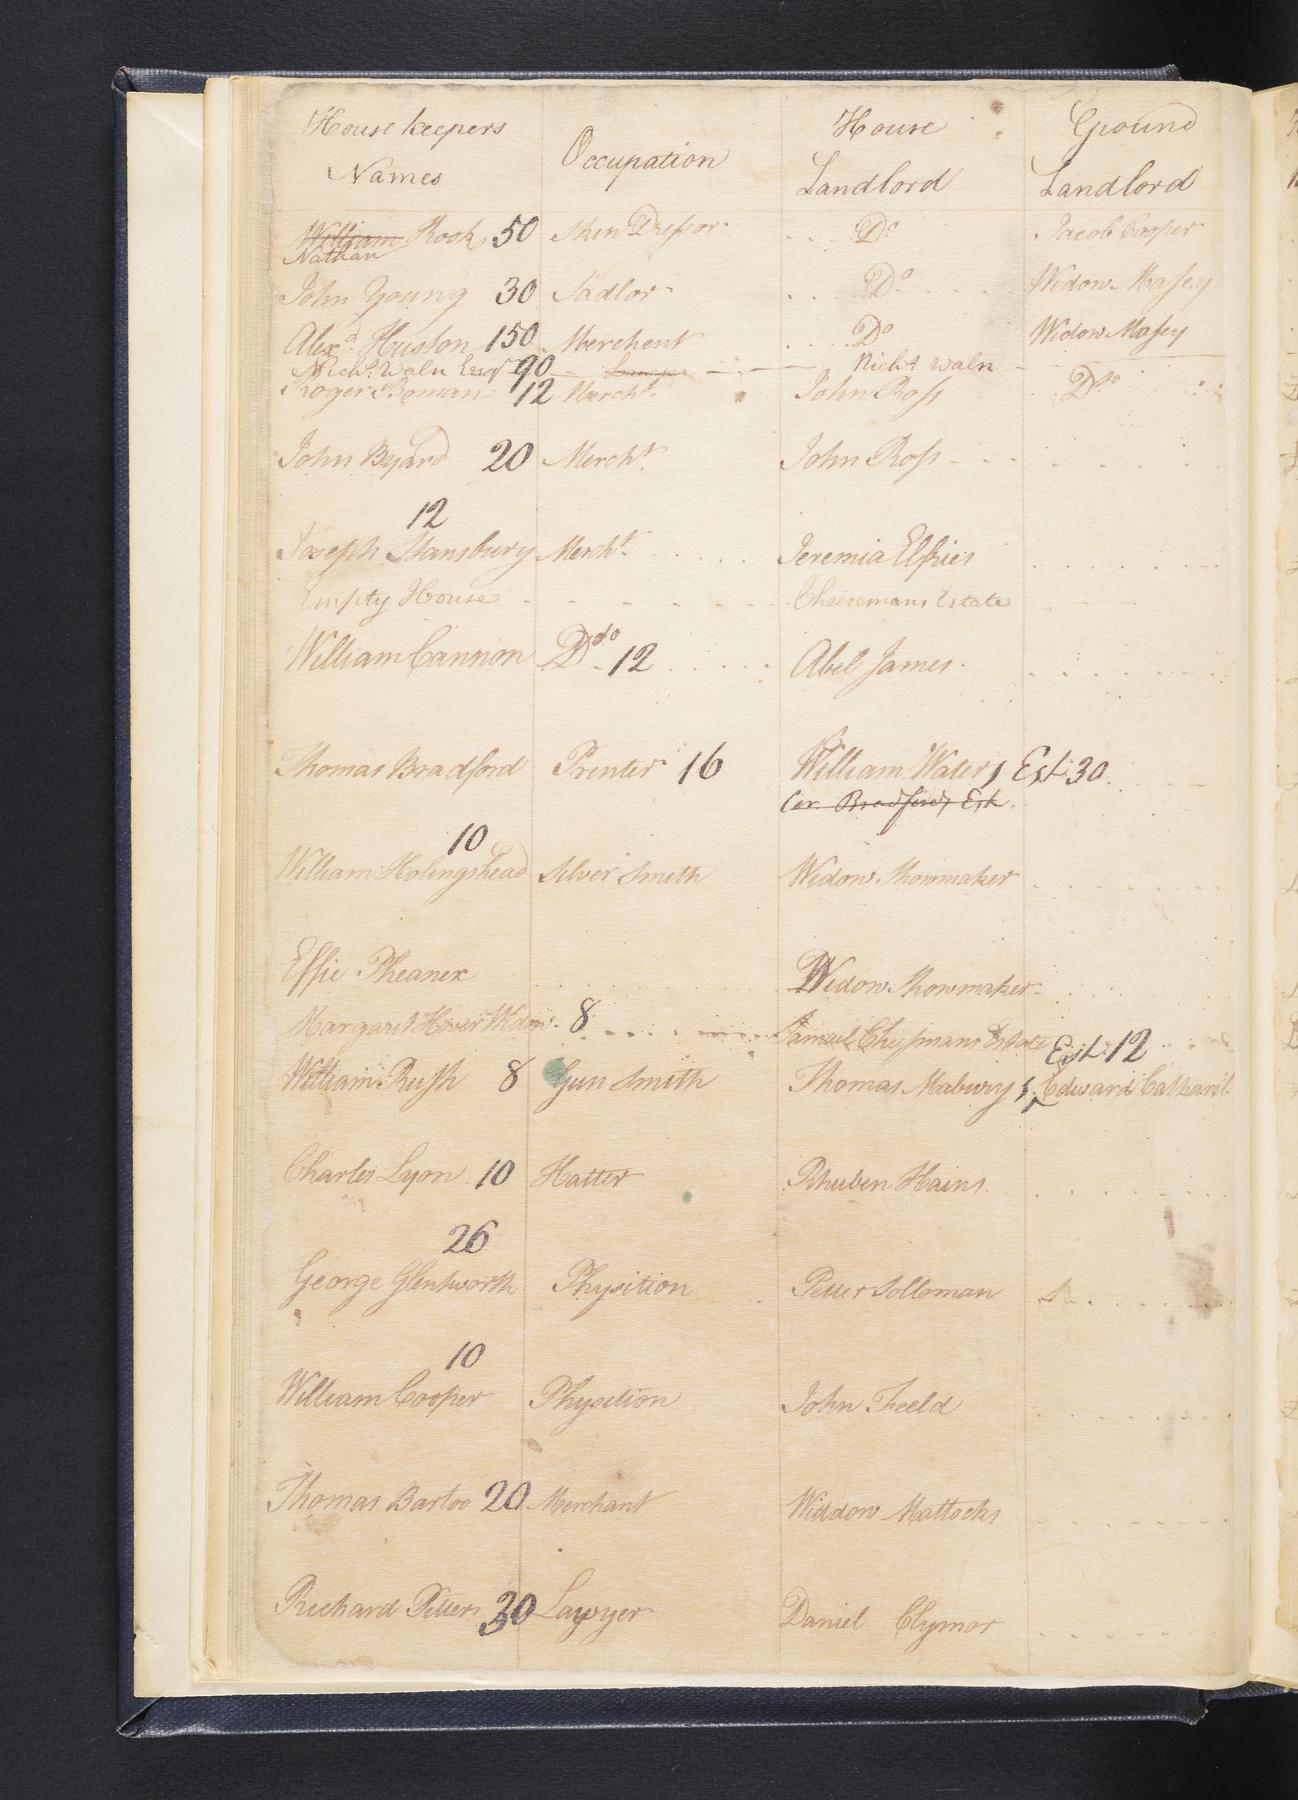 House keepers Names Occupation House Landlord Ground Landlord
William Rook 50 Skin Dressor Do Jacob Cooper
Nathan
John Young 30 Sadlor Do Widow Masey
Alexd. Huston 150 Merchent Do Widow Masey
Nichs. Waln Esqr 90 Lawyer Nichs waln
Roger Boman 12 Mercht. John Ross Do
John Byard 20 Mercht. John Ross
12
Joseph Stansbury Mercht. Jeremia Elfries
Empty House Cheesemans Estate
William Cannon Ddo 12 Abel James
Thomas Bradford Printer 16 William Waters Est. 30
Cor. Bradfords Est.
10
William Holingshead Silver Smith Widow Showmaker
Effie Pheanex Widow Showmaker
Margaret Hover Widow 8 Samuel Chesmans Estate Est. 12
William Rush 8 Gun Smith Thomas Mabury & Edward
Charles Lyon 10 Hatter Rhuben Hains
26
George Glentworth Physition Petter Solloman
10
William Cooper Physition John Feeld
Thomas Bartoo 20 Merchant Widdow Mattocks
Richard Petters 30 Lawyer Daniel Clymor